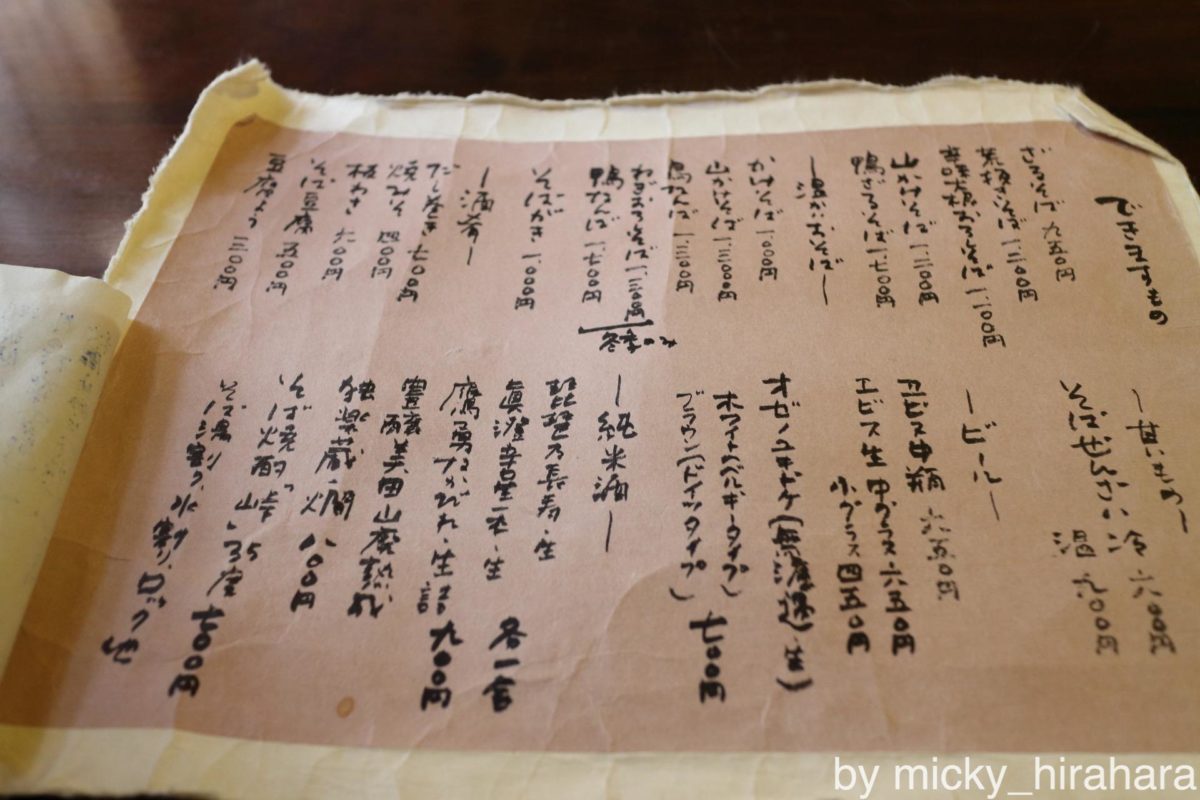 できますもの
ざるそば 九五〇円
荒挽きそば 一、三〇〇円
辛味大根おろしそば 一、一〇〇円
山かけそば 一、三〇〇円
鴨ざるそば 一、七〇〇円
―温かいおそば―
かけそば 一、〇〇〇円
山かけそば
鳥なんば 一、三〇〇円
そば 一、三〇〇円
鴨なんば 一、七〇〇円
冬季のみ
そばがき 一、〇〇〇円
―酒肴―
だし巻き 七〇〇円
焼みそ 四〇〇円
板わさ 六〇〇円
そば豆腐 五〇〇円
豆腐よう 三〇〇円
―甘いもの―
そばぜんざい 冷 六〇〇円
温 六〇〇円
―ビール―
ヱビス中瓶 六五〇円
ヱビス生 中グラス 六五〇円
小グラス 四五〇円
オゼノユキドケ(無濾過・生)
ホワイト(ベルギータイプ)
ブラウン(ドイツタイプ) 七〇〇円
―純米酒―
琵琶乃長寿・生
眞澄 生
鷹勇なかだれ・生詰 九〇〇円
各一合
豊廬美田山廃
独楽蔵・燗 八〇〇円
そば焼酎“峠”35度 七〇〇円
そば湯割り、水割り、ロック他
by micky_hirahara